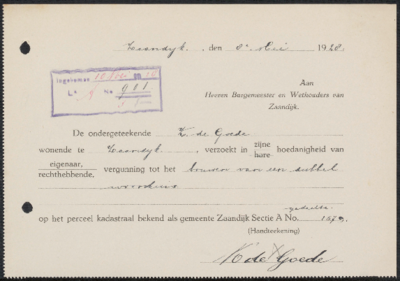 Zaandijk, den 8 Mei 1928.
Ingekomen 10 Mei 1928
La A No 911
Aan
Heeren Burgemeester en Wethouders van
Zaandijk.
De ondergeteekende K. de Goede
wonende te Zaandijk, verzoekt in zijne hare hoedanigheid van
eigenaar,
rechthebbende, vergunning tot het bouwen van een dubbel
woonhuis
gedeelte
op het perceel kadastraal bekend als gemeente Zaandijk Sectie A No.
(Handteekening)
K de Goede